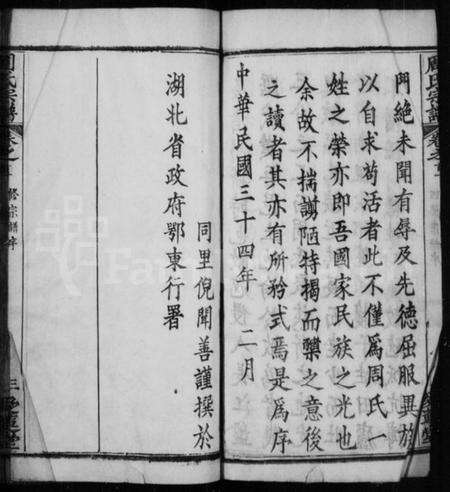 門絕未聞有辱及先德屈服異於
以自求苟活者此不僅為周氏一
姓之榮亦即吾國家民族之光也
余故不揣謭陋特揭而櫫之意後
之讀者其亦有所矜式焉是為序
中華民國三十四年 二月
同里倪聞善謹撰於
湖北省政府鄂東行署
周氏宗譜
卷之